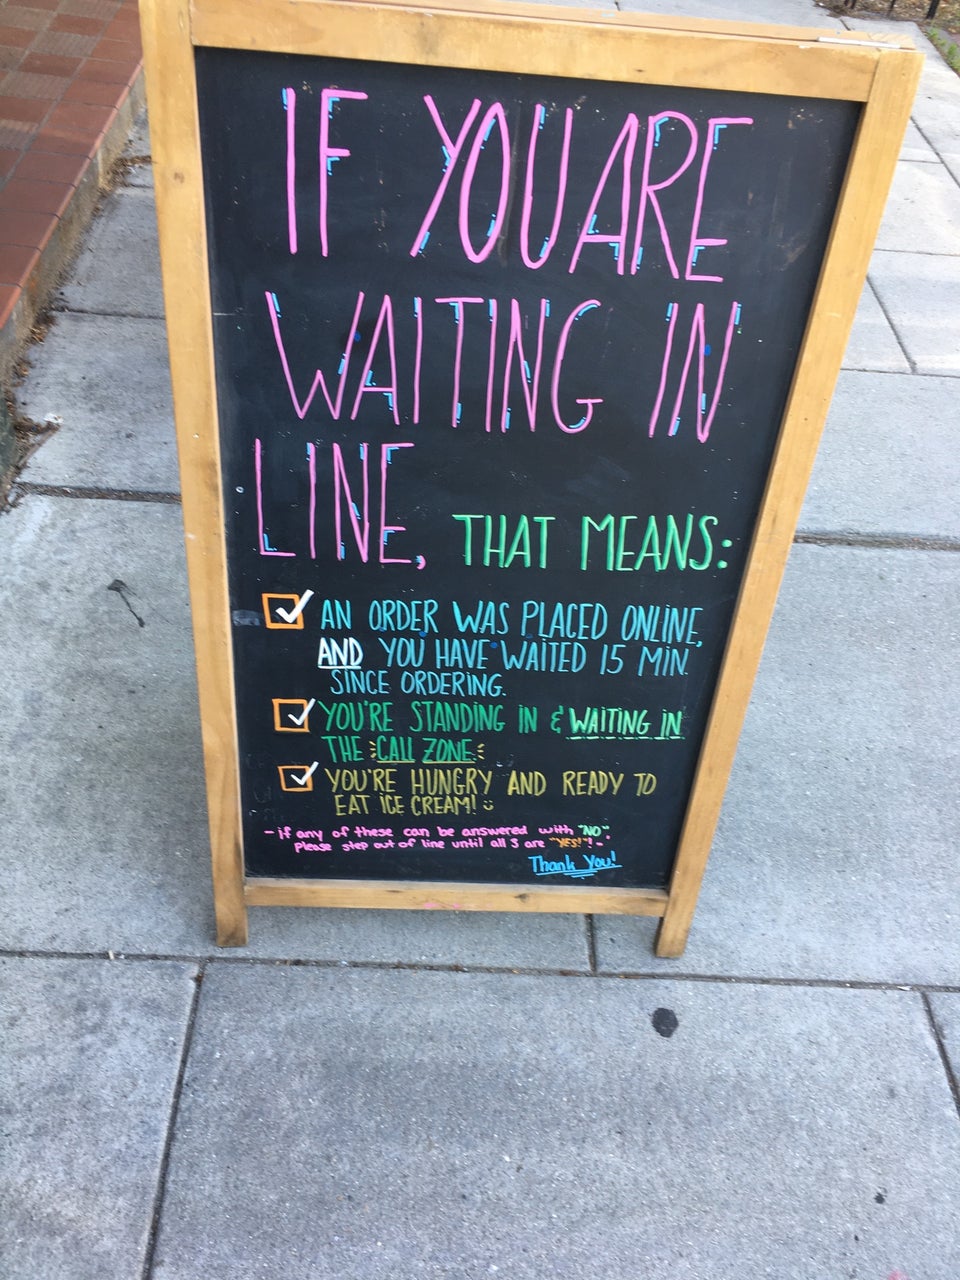 IF YOU ARE
WAITING IN
LINE, THAT MEANS:
AN ORDER WAS PLACED ONLINE,
AND YOU HAVE WAITED 15 MIN.
SINCE ORDERING.
YOU'RE STANDING IN & WAITING IN
THE CALL ZONE
YOU'RE HUNGRY AND READY TO
EAT ICE CREAM!
- if any of these can be answered with "NO",
Please step out of line until all 3 are "YES!"! -
Thank You!